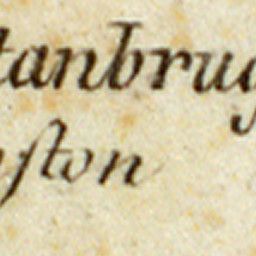 tanbrug
yſton